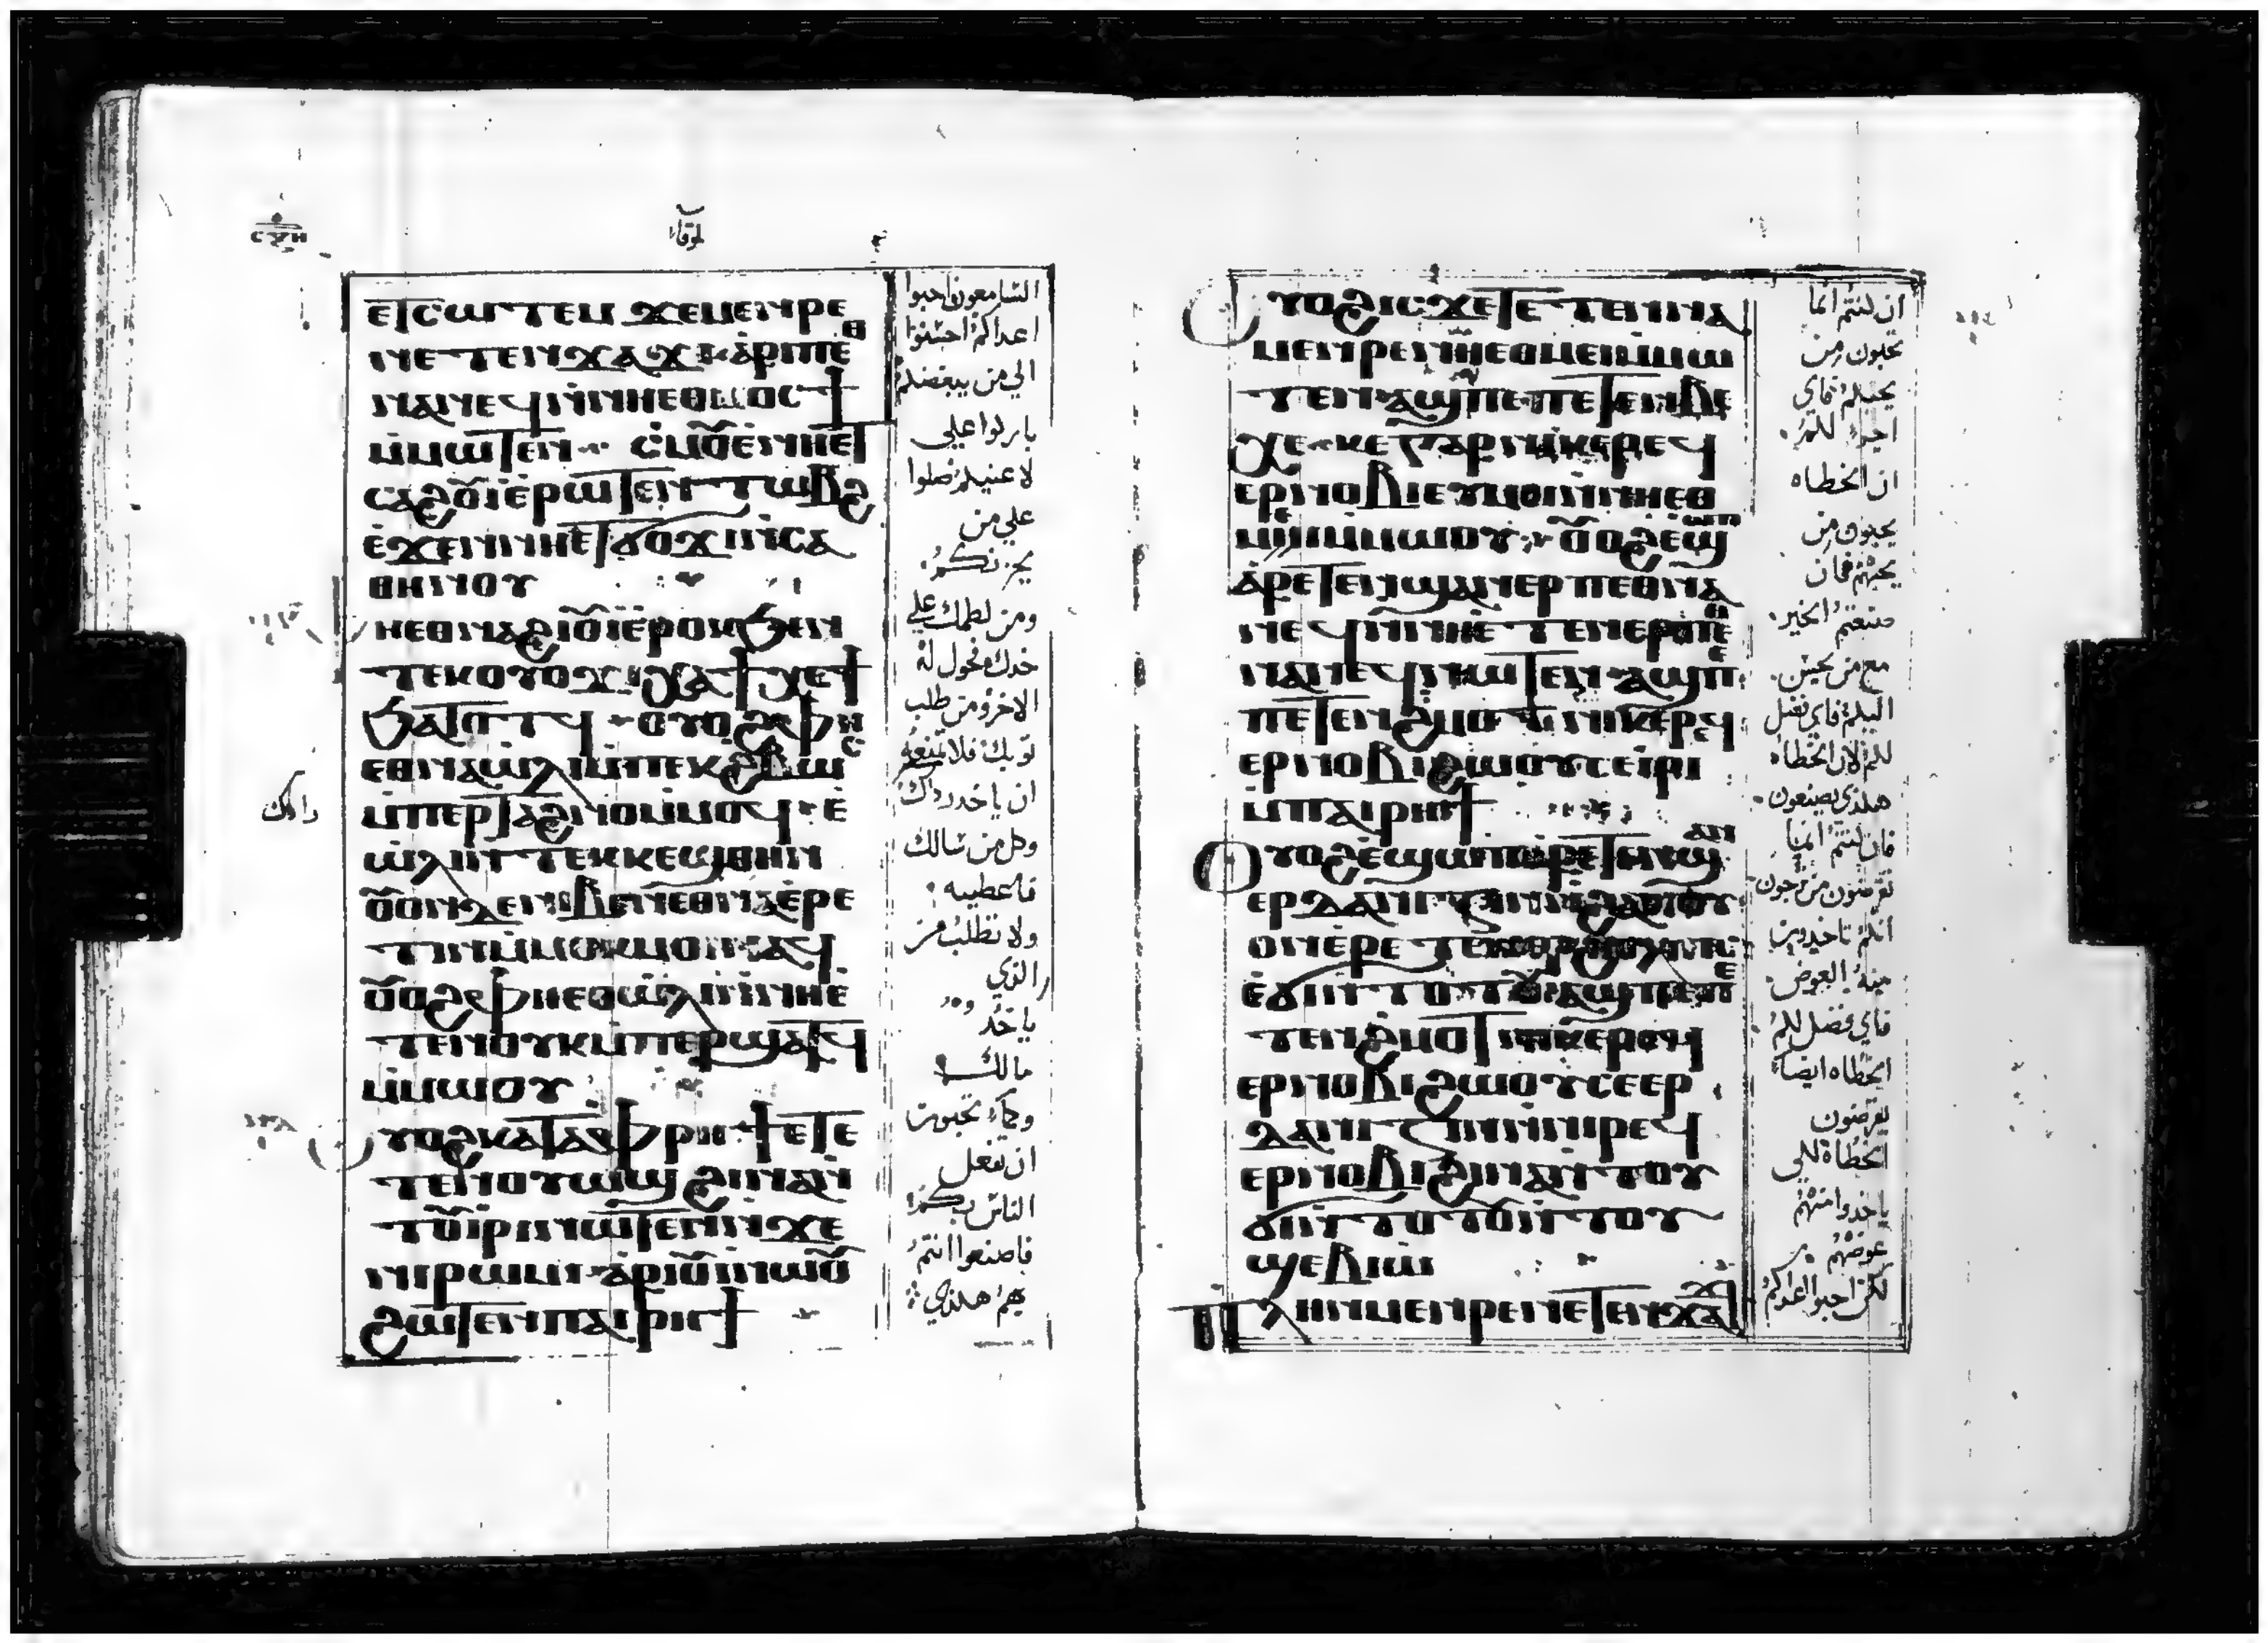 ⲥⲝⲏ
لوقا
ⲉⲧⲥⲱⲧⲉⲙ ϫⲉⲙⲉⲛⲣⲉ
ⲛⲉⲧⲉⲛϫⲁϫⲓ ⲁⲣⲓⲡⲉⲑ
ⲛⲁⲛⲉϥ ⲛⲛⲏⲉⲑⲙⲟⲥϯ
ⲙⲙⲱⲧⲉⲛ ⲥⲙⲟⲩ ⲉⲛⲏⲉⲧ
ⲥⲁϩⲟⲩⲓ ⲉⲣⲱⲧⲉⲛ ⲧⲱⲃϩ
ⲉϫⲉⲛ ⲛⲏⲉⲧϭⲟϫⲓ ⲛⲥⲁ
ⲑⲏⲛⲟⲩ
ⲫⲏⲉⲑⲛⲁϩⲓⲟⲩⲓ ⲉⲣⲟⲕ ϧⲉⲛ
ⲧⲉⲕⲟⲩⲟϫⲓ ⲭⲁ ϯⲭⲉϯ
ϧⲁⲧⲟⲧϥ ⲟⲩⲟϩ ⲫⲏ
ⲉⲑⲛⲁⲱⲗⲓ ⲙⲡⲉⲕϩⲃⲱⲥ
ⲙⲡⲉⲣⲧⲁϩⲛⲟ ⲙⲙⲟϥ ⲉ
ⲱⲗⲓ ⲛⲧⲉⲕⲕⲉϣⲑⲏⲛ
ⲟⲩⲟⲛ ⲇⲉ ⲛⲓⲃⲉⲛ ⲉⲑⲛⲁⲉⲣⲉ
ⲧⲓⲛ ⲙⲙⲟⲕ ⲙⲟⲓ ⲛⲁϥ
ⲟⲩⲟϩ ⲫⲏⲉⲑⲱⲗⲓ ⲛⲛⲏⲉ
ⲧⲉⲛⲟⲩⲕ ⲙⲡⲉⲣϣⲁⲧϥ
ⲙⲙⲱⲟⲩ
ⲩⲟϩ ⲕⲁⲧⲁ ⲫⲣⲏϯ ⲉⲧⲉ
ⲧⲉⲛⲟⲩⲱϣ ϩⲓⲛⲁ ⲛ
ⲧⲟⲩⲓⲣⲓ ⲛⲱⲧⲉⲛ ⲛϫⲉ
ⲛⲓⲣⲱⲙⲓ ⲁⲣⲓⲟⲩⲓ ⲛⲱⲟⲩ
ϩⲱⲧⲉⲛ ⲙⲡⲁⲓⲣⲏϯ
السامعون احبوا
اعداكم احسنوا
الي من يبغضكم
باركوا علي
لاعنيكم صلوا
علي من
يحزنكم
ومن لطمك علي
خدك فحول له
الاخر ومن طلب
ثوبك فلا تمنعه
ان ياخد رداك
وكل من سالك
فاعطيه
ولا تطلب من
الذي
ياخد
مالك
وكما تحبون
ان تفعل
الناس بكم
فاصنعوا انتم
بهم هكذي
رداك
ⲟⲩⲟϩ ⲓⲥϫⲉ ⲧⲉⲧⲉⲛⲛⲁ
ⲙⲉⲛⲣⲉ ⲛⲏⲉⲑⲙⲉⲓ ⲙⲙⲱ
ⲧⲉⲛ ⲁϣ ⲡⲉ ⲡⲉⲧⲉⲛⲃⲉ
ⲭⲉ ⲕⲉ ⲅⲁⲣ ⲛⲓⲕⲉⲣⲉϥ
ⲉⲣⲛⲟⲃⲓ ⲉⲩⲙⲉⲓ ⲛⲛⲏⲉⲑ
ⲙⲉⲓ ⲙⲙⲱⲟⲩ ⲟⲩⲟϩ ⲉϣⲱⲡ
ⲁⲣⲉⲧⲉⲛϣⲁⲛⲉⲣ ⲡⲉⲑⲛⲁ
ⲛⲉϥ ⲛⲛⲏⲉⲧⲉⲛⲉⲣ ⲡⲉⲑ
ⲛⲁⲛⲉϥ ⲛⲱⲧⲉⲛ ⲁϣ ⲡⲉ
ⲡⲉⲧⲉⲛϩⲙⲟⲧ ⲛⲓⲕⲉⲣⲉϥ
ⲉⲣⲛⲟⲃⲓ ϩⲱⲟⲩ ⲥⲉⲓⲣⲓ
ⲙⲡⲁⲓⲣⲏϯ
ⲟⲩⲟϩ ⲉϣⲱⲡ ⲁⲣⲉⲧⲉⲛϣⲁⲛ
ⲉⲣⲇⲁⲛⲓⲍⲓⲛ
ⲉϭⲓ ⲛⲧⲟⲧⲟⲩ ⲁϣ ⲡⲉ ⲡⲉ
ⲧⲉⲛϩⲙⲟⲧ ⲛⲓⲕⲉⲣⲉϥ
ⲉⲣⲛⲟⲃⲓ ϩⲱⲟⲩ ⲥⲉⲉⲣ
ⲇⲁⲛⲓⲍⲓⲛ ⲛⲛⲓⲣⲉϥ
ⲉⲣⲛⲟⲃⲓ ϩⲓⲛⲁ ⲛⲧⲟⲩ
ϭⲓ ⲛⲧⲟⲧⲟⲩ ⲛⲧⲟⲩ
ϣⲉⲃⲓⲱ
ⲡⲗⲏⲛ ⲙⲉⲛⲣⲉ ⲛⲉⲧⲉⲛϫⲁϫⲓ
ان كنتم انما
تحبون من
يحبكم فاي
اجر لكم
ان الخطاه
يحبون من
يحبهم فان
صنعتم الخير
مع من يحسن
اليكم فاي فضل
لكم لان الخطاه
هكذي يصنعون
فان كنتم انما
تقرضون من ترجون
انكم تاخدون
منه العوض
فاي فضل لكم
الخطاه ايضا
يقرضون
الخطاة لكي
ياخدوا منهم
عوضهم
لكن احبوا اعداكم